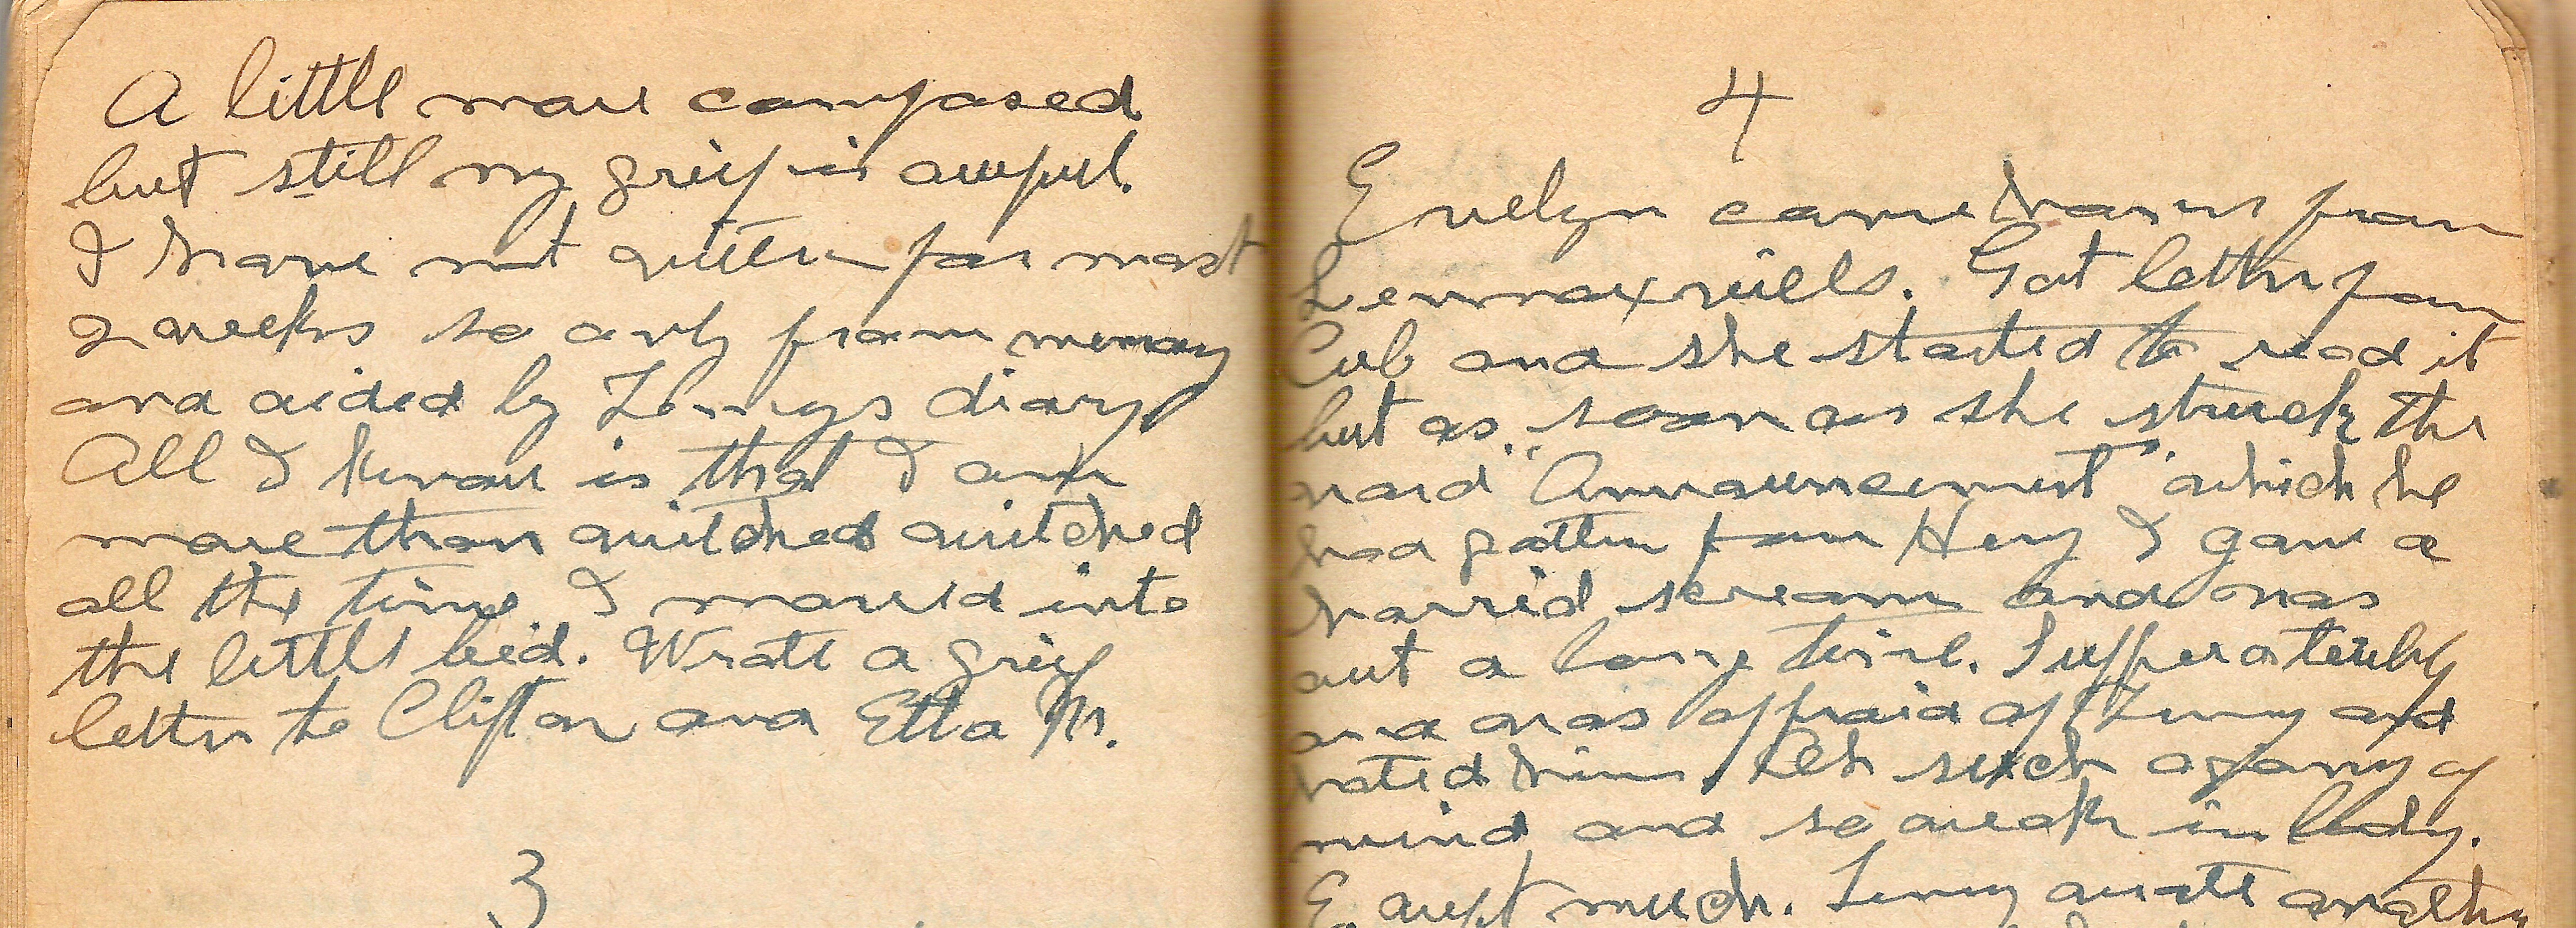 A little more composed
but still my grief is awful.
I have not written for most
2 weeks so only from memory
and aided by Lennys diary
All I know is that I am
more than wretched wretched
all the time I moved into
the little bed. Wrote a grief
letter to Clifton and Etta M.
3
4
Evelyn came home from
Lennoxville. Got letter from
Cub and she started to read it
but as soon as she struck the
word "Announcement" which he
had gotten from Hery I gave a
horrid scream and was
out a long time. Suffer a terribly
and was afraid of Lenny and
hated him. Oh such agony of
mind and so weak in body.
E. wept much. Lenny wrote another